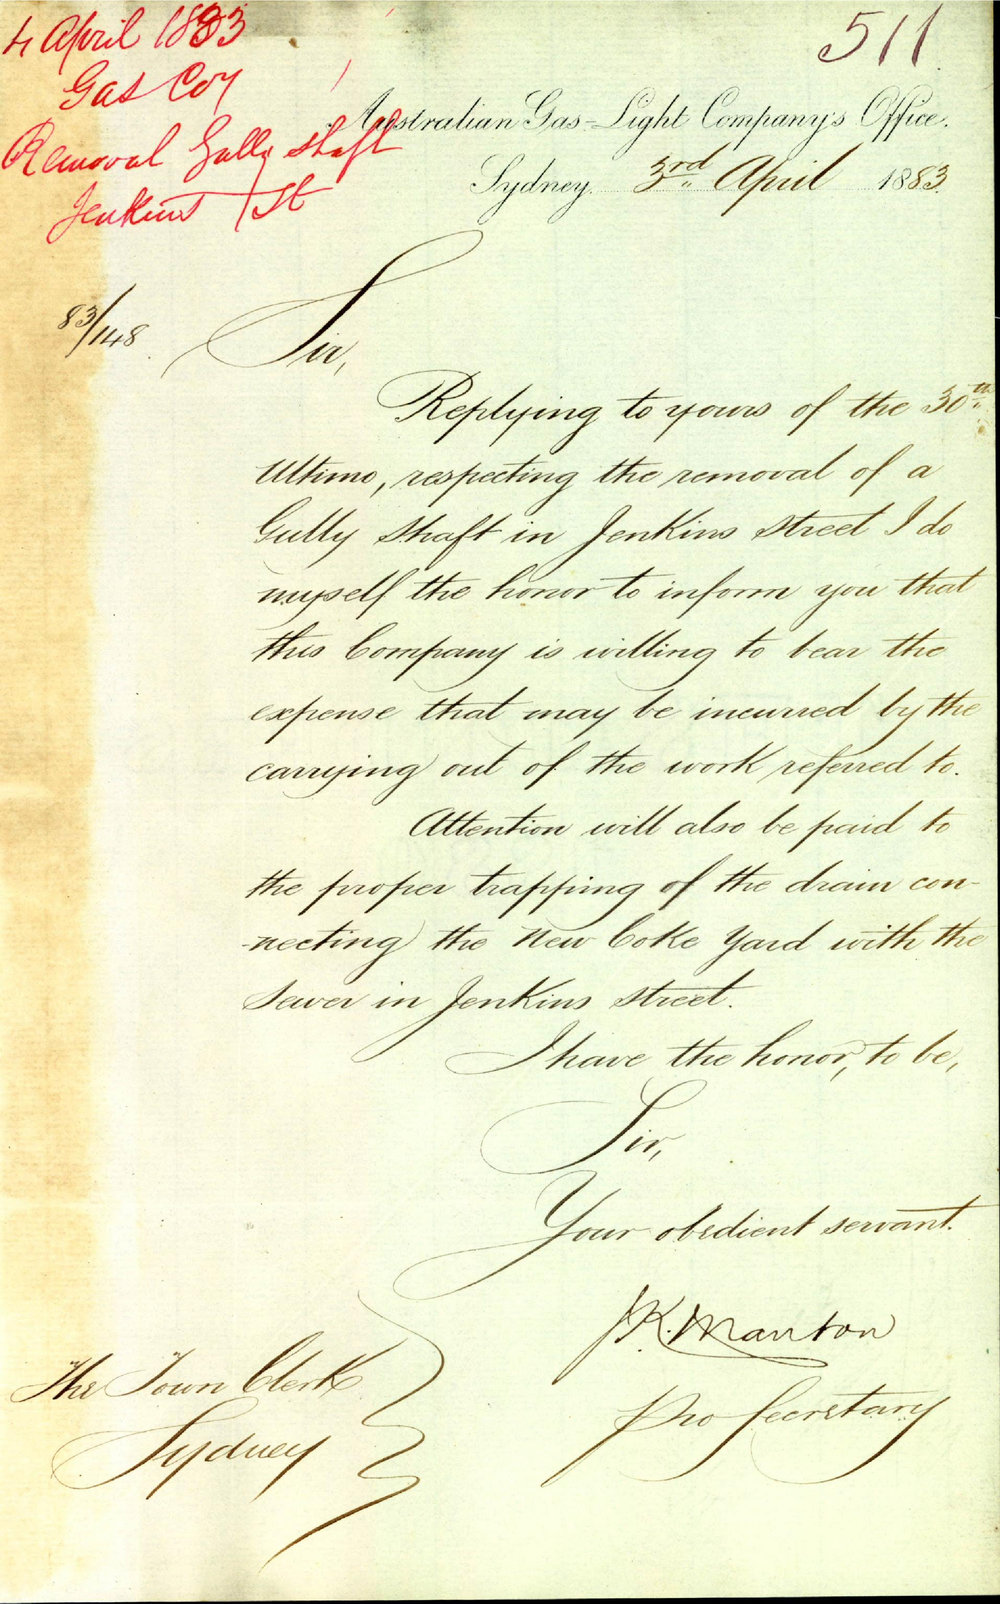 4 April 1883
Gas Coy
Removal Gully Shaft
Jenkins St
511
Australian Gas-Light Company's Office.
Sydney. 3rd April 1883
83/148
Sir,
Replying to yours of the 30th
Ultimo, respecting the removal of a
Gully Shaft in Jenkins Street I do
myself the honor to inform you that
this Company is willing to bear the
expense that may be incurred by the
carrying out of the work referred to.
Attention will also be paid to
the proper trapping of the drain con-
-necting the New Coke Yard with the
Sewer in Jenkins Street.
I have the honor, to be,
Sir,
Your obedient servant.
J.K. Manton
Pro Secretary
The Town Clerk
Sydney